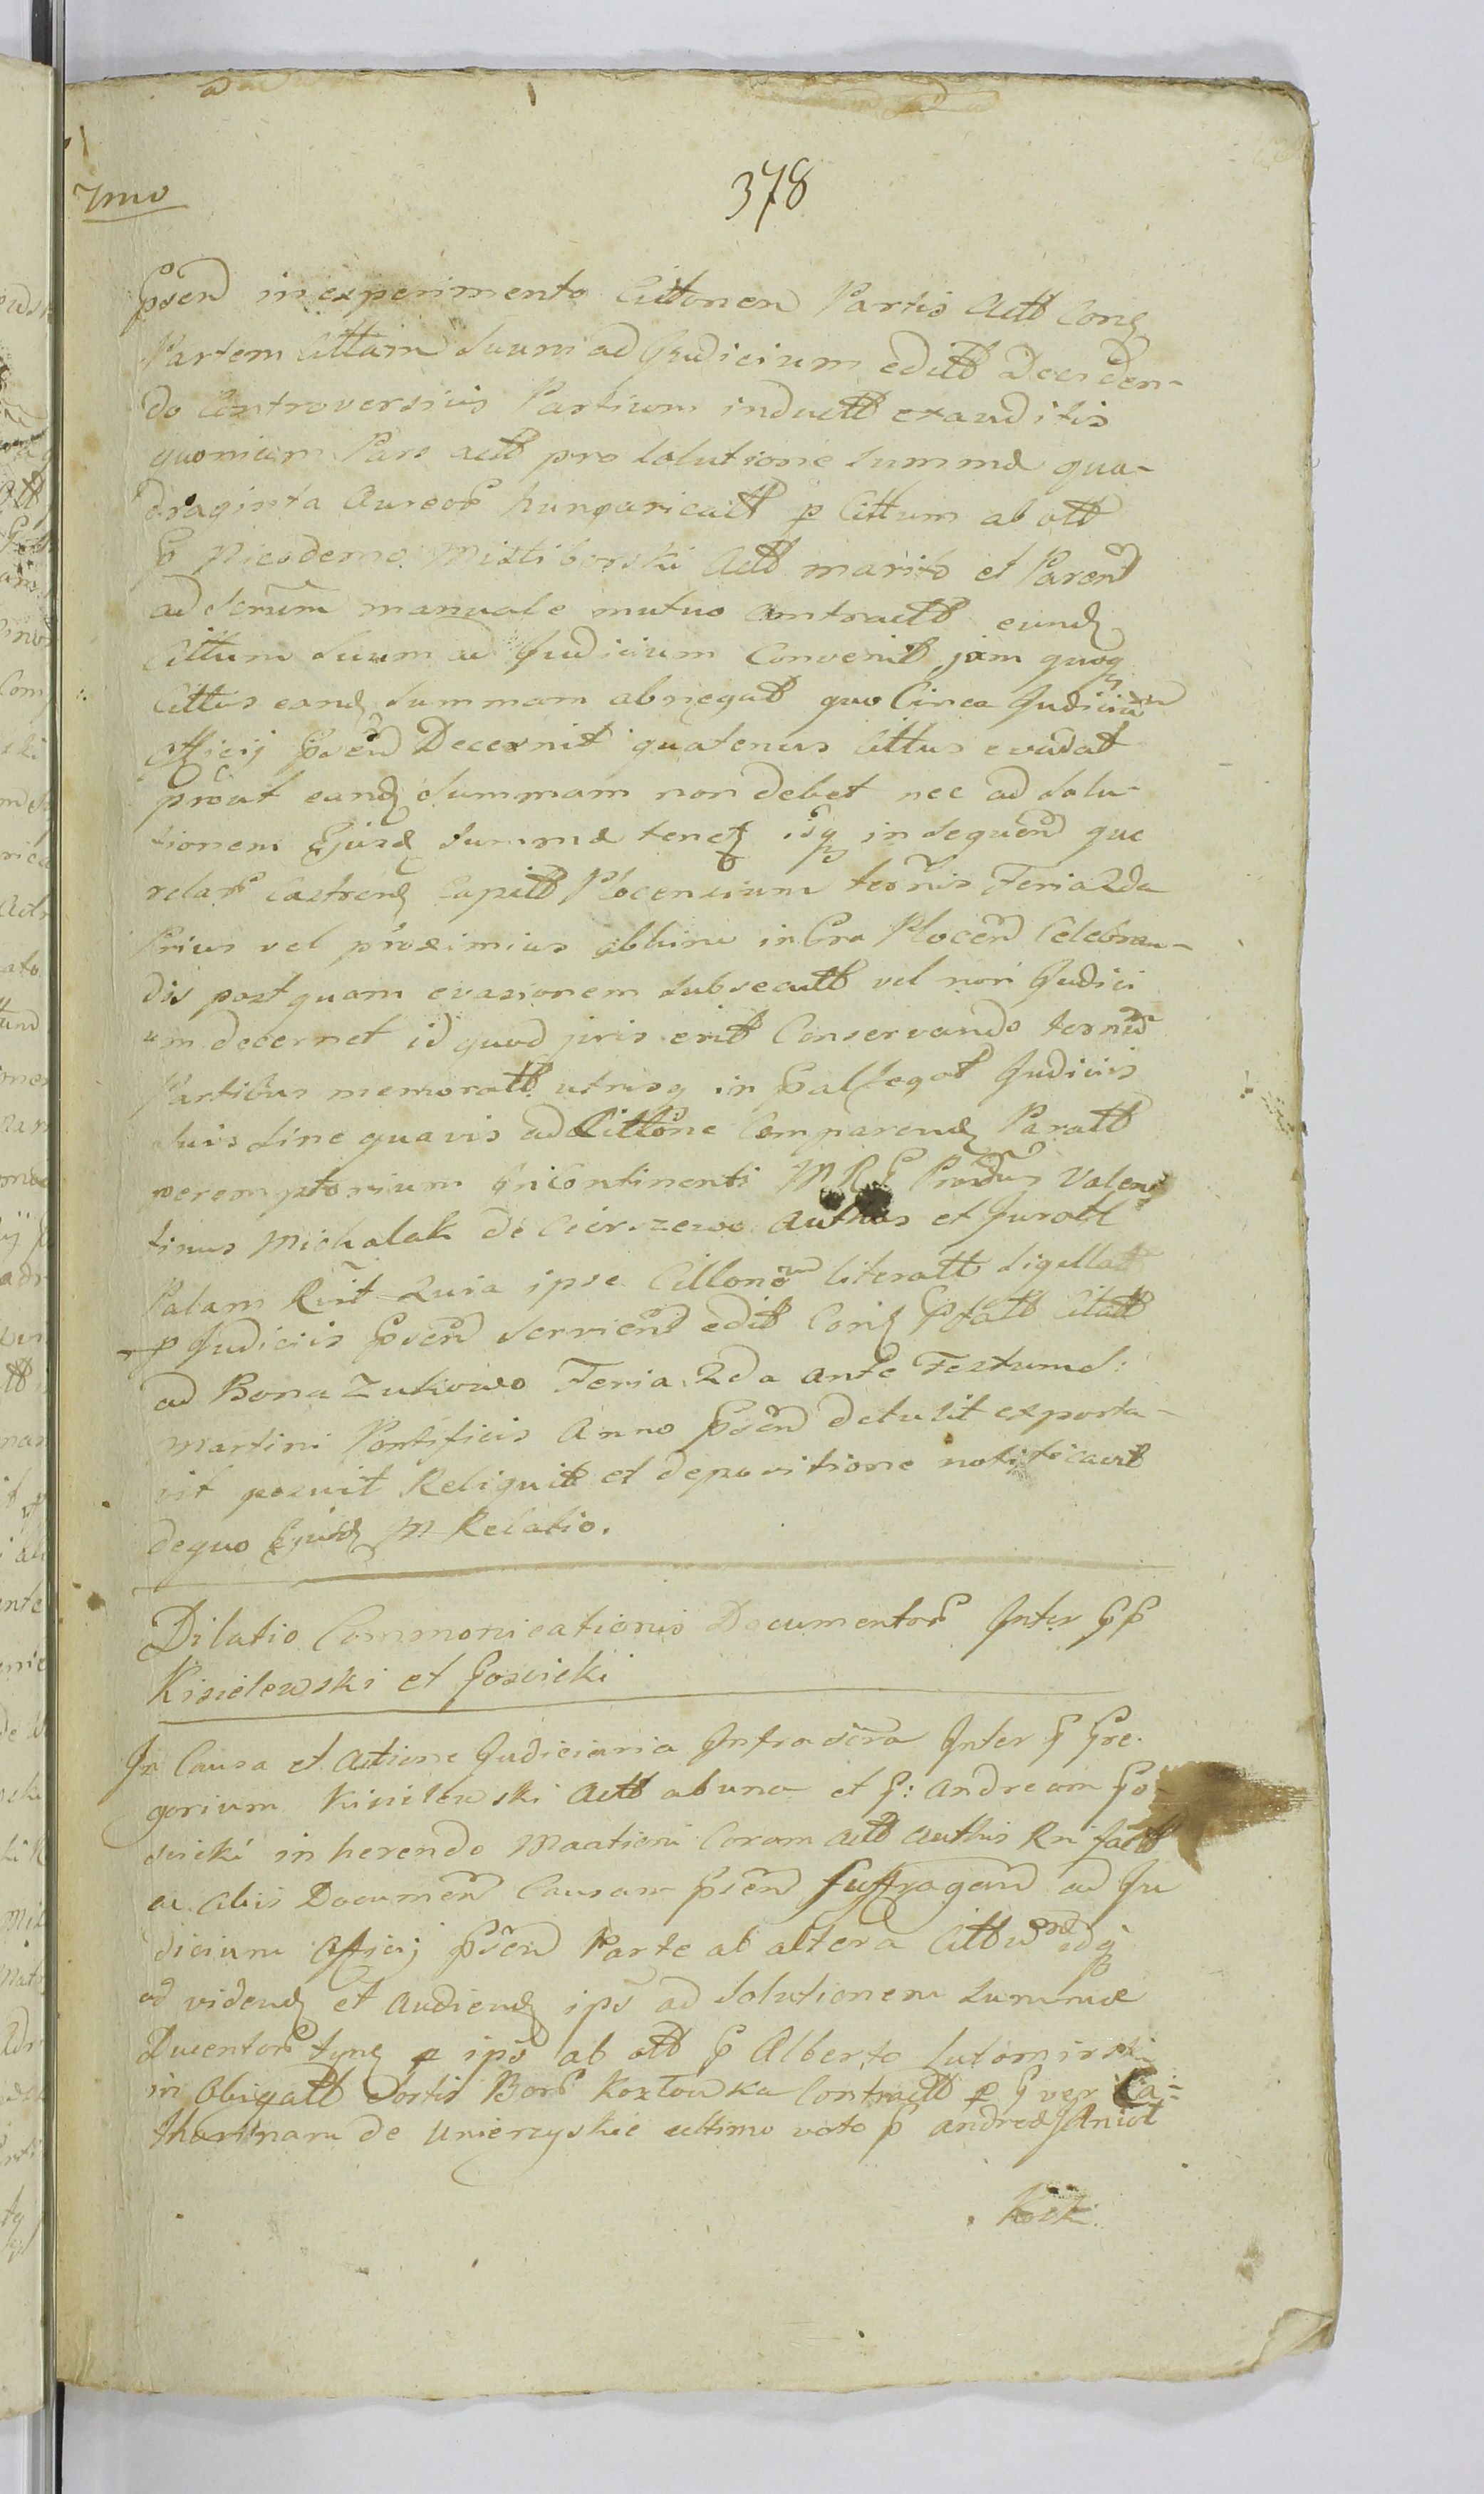 378
7mo
Psend in experimento Cittonen Partis Actt Conq
Partem Cittam Suum ad Judicium editt Deciden-
do Controversiis Partium inductt exauditis
quoniam Pars actt pro Solutione Summæ qua-
draginta Aureor hungaricatt p Cittum ab ott
G Nicodemo Mistiborski Actt marito et Parent
ad scrum manuale mutuo Contractt eund
Cittum Suum ad Judicium Convenit jam quoq
Cittus eand Summam abnegat quo Circa Judicium
Officij Psend Decernit quatenus Cittus evadat
prout eand Summam non debet nec ad Solu-
tionem Ejusd Summæ tenet isq in sequend que
relar Castrens Capitt Plocensium terminis Feria 2da
Prius vel proximius abhinc in Cra Plocen Celebran-
dis post quam evasionem Subsecutt vel non Judici
um decernet id quod juris erit Conservando termin
Partibus memoratt utrisq in Psallegat Judiciis
Suis Sine quavis ad Cittone Comparend Paratt
peremptorium In Continenti M R G Prvdus Valen
tinus Michalak de Cierszewo Authus et Juratt
Palam Rvit Quia ipse Cittonem literatt Sigillatt
p Judiciis Psend Servient edit Conq Pfatt Citatt
ad Bona Zukowo Feria 2da ante Festum S:
Martini Pontificis Anno Psend detulit exporta-
vit posuit Reliquit et depositione notificavit
de quo Ejusd M Relatio.
Dilatio Communicationis Documentor Inter GG
Kisielewski et Gosicki
In Causa et Actione Judiciaria Infrascra Inter G Gre-
gorium Kisielewski Actt ab una et G: Andream Go-
sicki in herendo Maationi Coram actt Authis Rni factt
ac aliis Documen Causam Psend Suffragand ad Ju
dicium Officij Psend Parte ab altera Cittum idq
ad videnq et Audiend ips ad Solutionem Summæ
Ducentor tynf p ips ab ott G Alberto Lutomirski
in Obligatt Sortis Bonr Kozłowka Contractt p G vgr Ca-
tharinam de Unierzyskie ultimo voto G Andreæ Aniol
kosk.